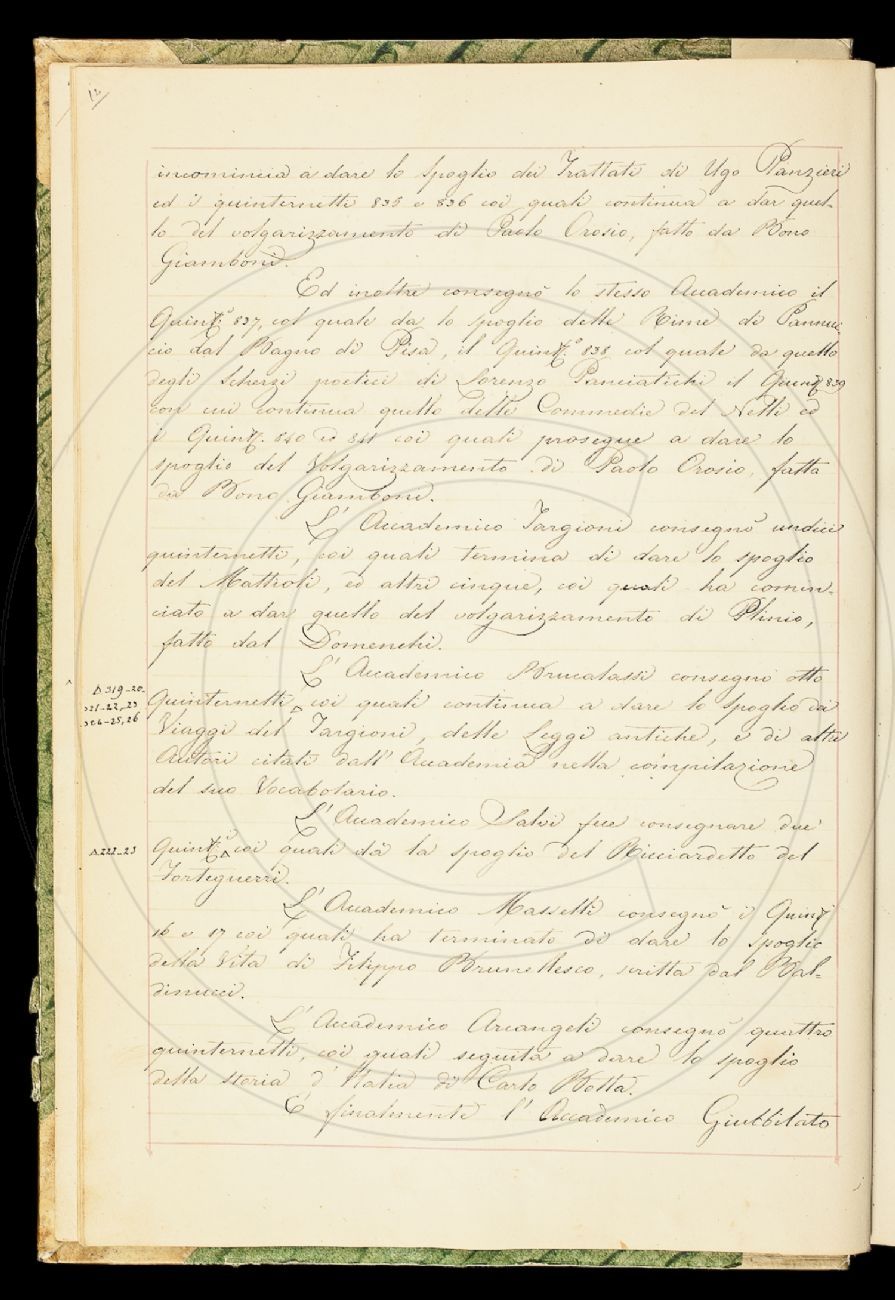 12
incomincia a dare lo spoglio dei Trattati di Ugo Panzieri
ed i quinternetti 835 e 836 coi quali continua a dar quel-
lo del volgarizzamento di Paolo Orosio, fatto da Bono
Giamboni.
Ed inoltre consegnò lo stesso Accademico il
Quint.° 837, col quale da lo spoglio delle Rime di Pannuc
cio dal Bagno di Pisa, il Quint.° 838 col quale da quello
degli Scherzi poetici di Lorenzo Panciatichi il Quint. 839
con cui continua quello delle Commedie del Nelli ed
i Quint. 840 ed 841 coi quali prosegue a dare lo
spoglio del Volgarizzamento di Paolo Orosio, fatta
da Bono Giamboni.
L' Accademico Targioni consegnò undici
quinternetti, coi quali termina di dare lo spoglio
del Mattioli, ed altri cinque, coi quali ha comin-
ciato a dar quello del volgarizzamento di Plinio,
fatto dal Domenichi.
L' Accademico Brucalassi consegnò otto
Δ 319-20-
321-22-23
324-25, 26
Quinternetti Δ coi quali continua a dare lo spoglio dei
Viaggi del Targioni, delle Leggi antiche, e di altri
Autori citati dall' Accademia nella compilazione
del suo Vocabolario.
L' Accademico Salvi fece consegnare due
Δ 222-23
Quint.i Δ coi quali dà la spoglio del Ricciardetto del
Forteguerri.
L' Accademico Masselli consegnò i Quint.i
16 e 17 coi quali ha terminato di dare lo spoglio
della Vita di Filippo Brunellesco, scritta dal Bal-
dinucci.
L' Accademico Arcangeli consegnò quattro
quinternetti, coi quali seguita a dare lo spoglio
della storia d' Italia di Carlo Botta.
E finalmente l' Accademico Giubbilato